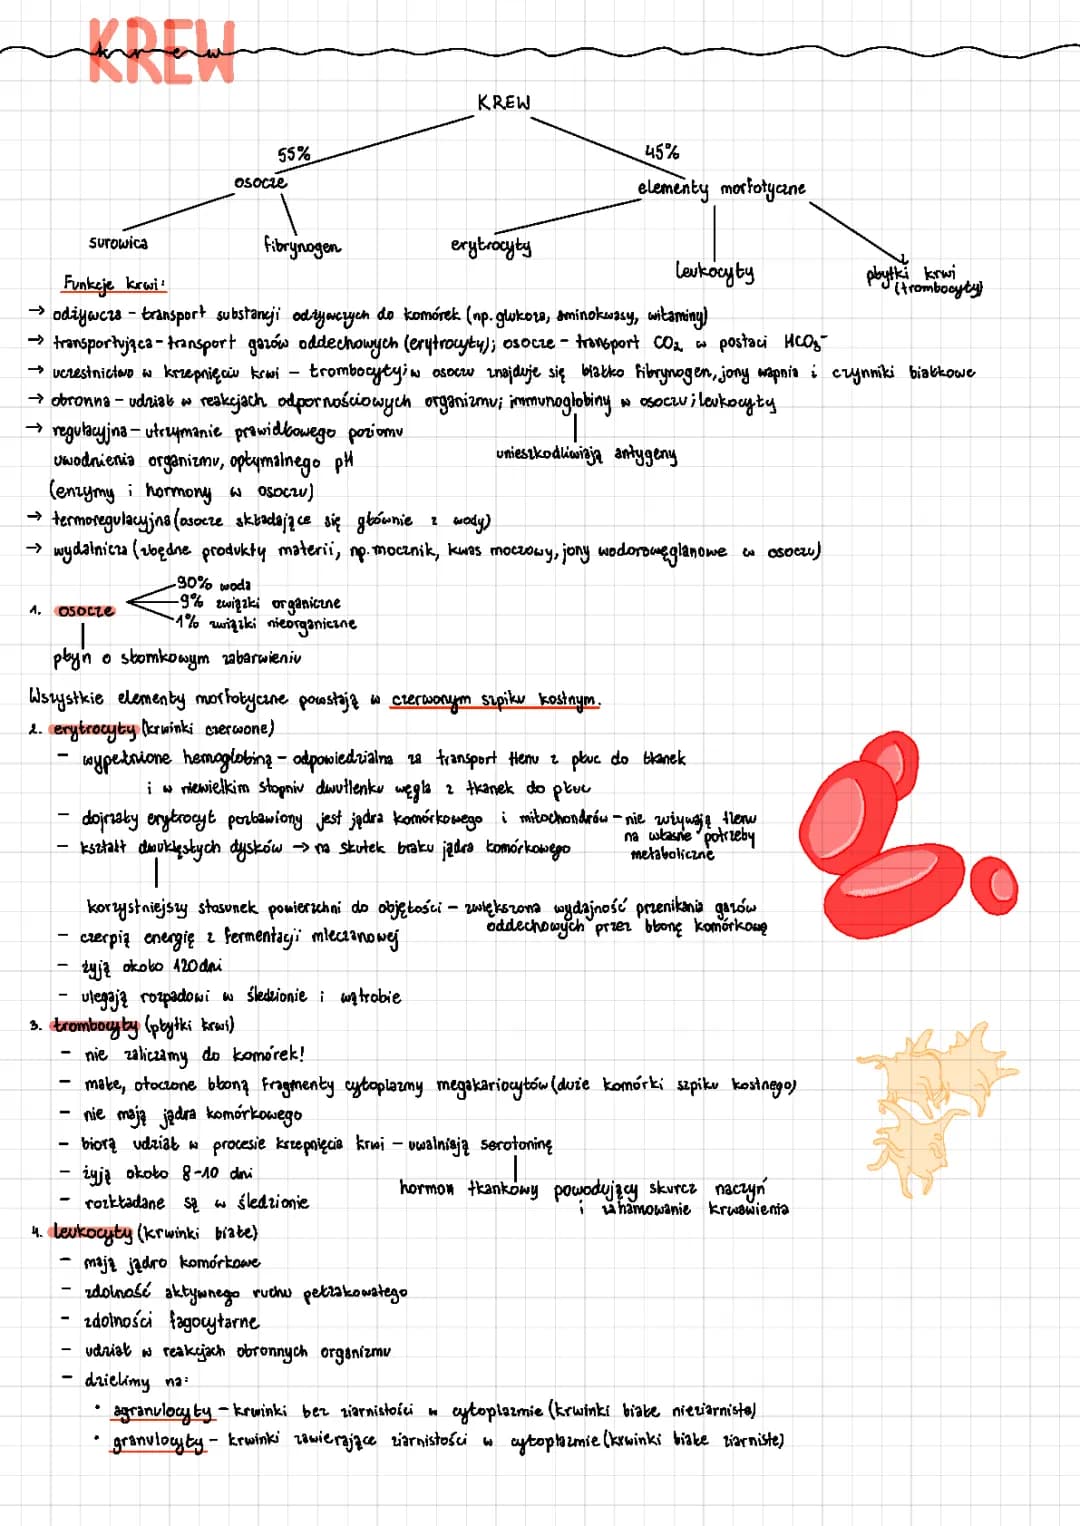 KREW
krew
KREW
55%
45%
osocze
elementy morfotyczne
surowica
fibrynogen
erytrocyty
leukocyty
płytki krwi
(trombocyty)
Funkcje krwi:
→ odżywcza - transport substancji odżywczych do komórek (np. glukoza, aminokwasy, witaminy)
→ transportująca - transport gazów oddechowych (erytrocyty); osocze - transport CO₂ w postaci HCO₃⁻
→ uczestnictwo w krzepnięciu krwi - trombocyty; w osoczu znajduje się białko fibrynogen, jony wapnia i czynniki białkowe
→ obronna - udział w reakcjach odpornościowych organizmu; immunoglobiny w osoczu; leukocyty
→ regulacyjna - utrzymanie prawidłowego poziomu
unieszkodliwiają antygeny
uwodnienia organizmu, optymalnego pH
(enzymy i hormony w osoczu)
→ termoregulacyjna (osocze składające się głównie z wody)
→ wydalnicza (zbędne produkty materii, np. mocznik, kwas moczowy, jony wodorowęglanowe w osoczu)
90% woda
1. osocze
9% związki organiczne
1% związki nieorganiczne
płyn o słomkowym zabarwieniu
Wszystkie elementy morfotyczne powstają w czerwonym szpiku kostnym.
2. erytrocyty (krwinki czerwone)
- wypełnione hemoglobiną - odpowiedzialna za transport tlenu z płuc do tkanek
i w niewielkim stopniu dwutlenku węgla z tkanek do płuc
- dojrzały erytrocyt pozbawiony jest jądra komórkowego i mitochondrów - nie zużywają tlenu
na własne potrzeby
metaboliczne
- kształt dwuklęsłych dysków → na skutek braku jądra komórkowego
korzystniejszy stosunek powierzchni do objętości - zwiększona wydajność przenikania gazów
oddechowych przez błonę komórkową
- czerpią energię z fermentacji mleczanowej
- żyją około 120 dni
- ulegają rozpadowi w śledzionie i wątrobie
3. trombocyty (płytki krwi)
- nie zaliczamy do komórek!
- małe, otoczone błoną fragmenty cytoplazmy megakariocytów (duże komórki szpiku kostnego)
- nie mają jądra komórkowego
- biorą udział w procesie krzepnięcia krwi - uwalniają serotoninę
- żyją około 8-10 dni
hormon tkankowy powodujący skurcz naczyń
i zahamowanie krwawienia
- rozkładane są w śledzionie
4. leukocyty (krwinki białe)
- mają jądro komórkowe
- zdolność aktywnego ruchu pełzakowatego
- zdolności fagocytarne
- udział w reakcjach obronnych organizmu
- dzielimy na:
• agranulocyty - krwinki bez ziarnistości w cytoplazmie (krwinki białe nieziarniste)
• granulocyty - krwinki zawierające ziarnistości w cytoplazmie (krwinki białe ziarniste)